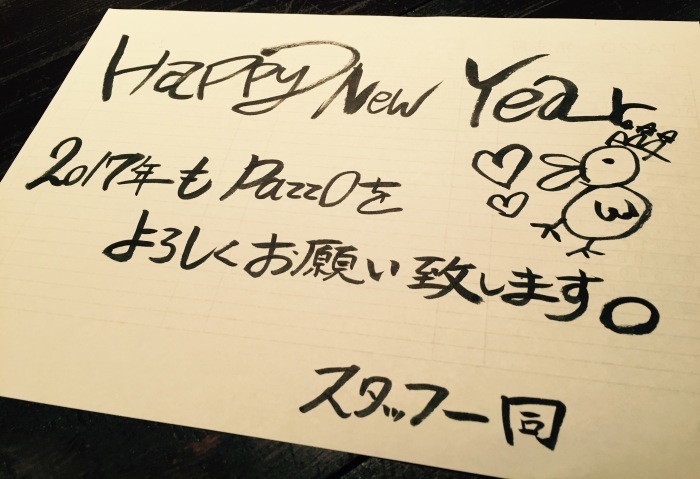 Happy New Year
2017年も PazzOを
よろしくお願い致します。
スタッフ一同